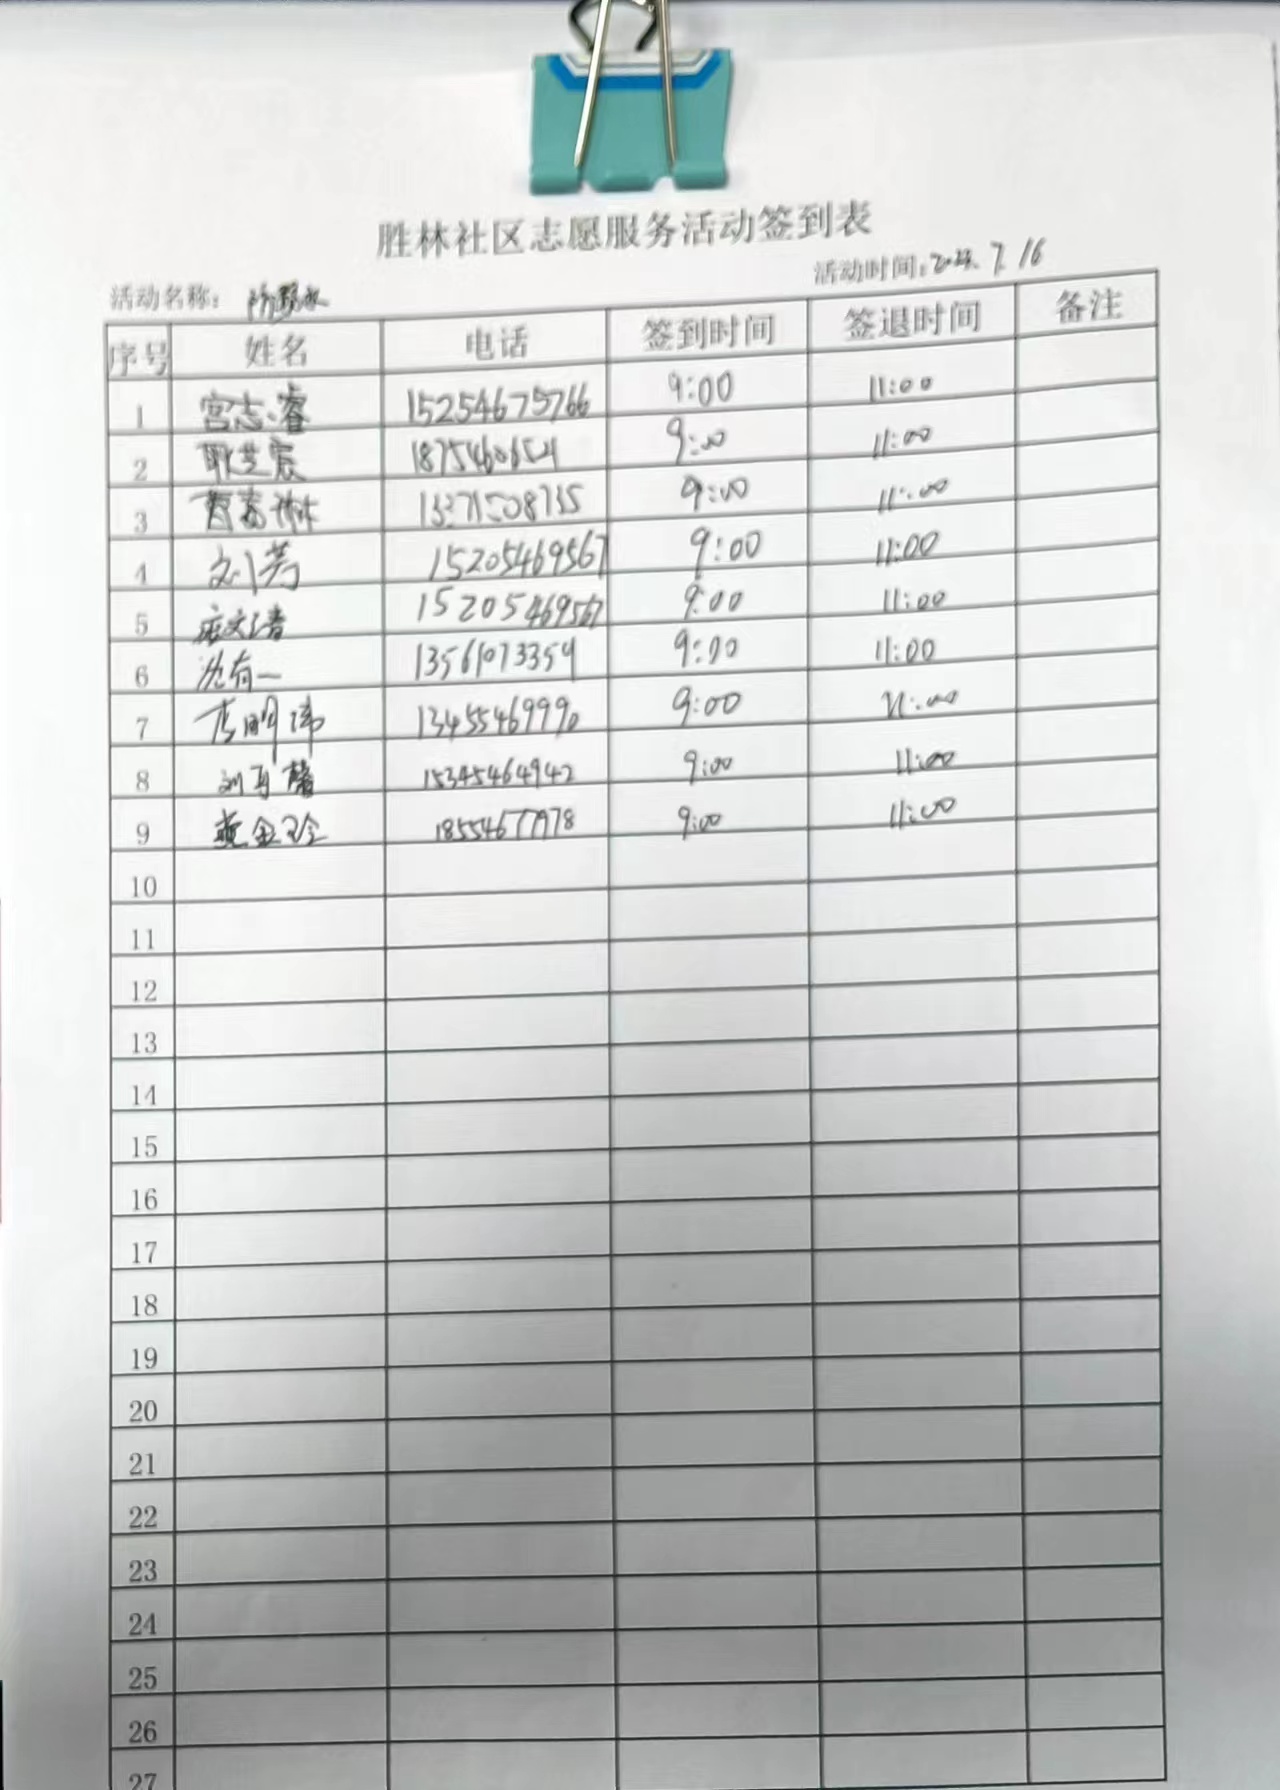 胜林社区志愿服务活动签到表
活动名称： 防溺水 活动时间：2024. 7. 16
序号 姓名 电话 签到时间 签退时间 备注
1 宫志睿 15254675766 9:00 11:00
2 耿芝宸 9:00 11:00
3 9:00 11:00
4 刘芳 15205469567 9:00 11:00
5 15205469567 9:00 11:00
6 沈有一 13561073354 9:00 11:00
7 李明沛 13455469990 9:00 11:00
8 15345464942 9:00 11:00
9 黄金玲 18554677978 9:00 11:00
10
11
12
13
14
15
16
17
18
19
20
21
22
23
24
25
26
27